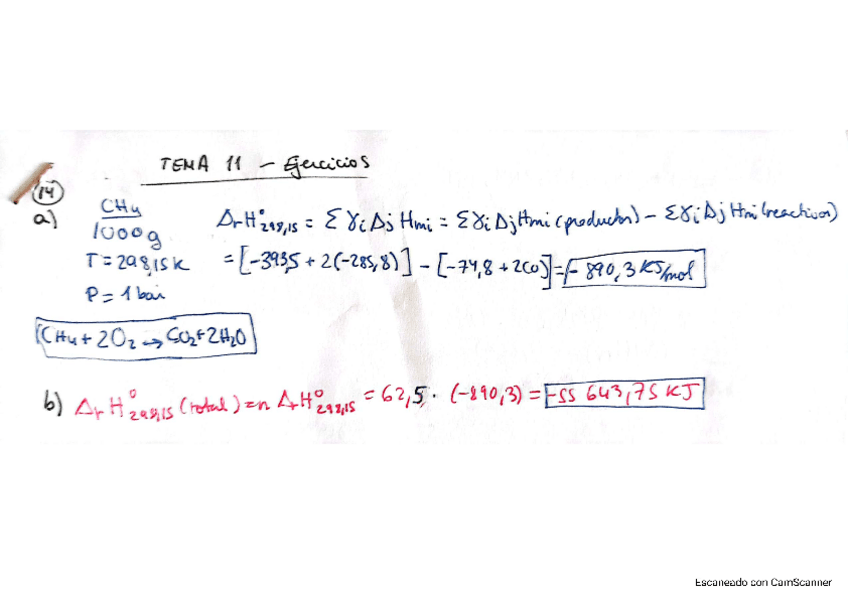 TEMA 11 - Ejercicios
14
a) CH4
1000g
T = 298,15 K
P = 1 bar
ΔrH°298,15 = Σ γi Δf Hmi = Σ γi Δf Hmi (productos) - Σ γi Δf Hmi (reactivos)
= [-393,5 + 2(-285,8)] - [-74,8 + 2(0)] = - 890,3 KJ/mol
CH4 + 2O2 → CO2 + 2H2O
b) ΔrH°298,15 (total) = n ΔrH°298,15 = 62,5 · (-890,3) = -55 643,75 KJ
Escaneado con CamScanner